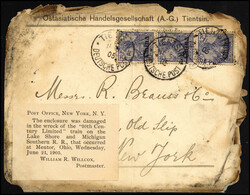 Ostasiatische Handelsgesellschaft (A.-G.) Tientsin.
TIENTSIN
DEUTSCHE POST
Messrs. R. Brauss & Co.
Old Slip
New York
POST OFFICE, NEW YORK, N. Y.
The enclosure was damaged
in the wreck of the "20th Cen-
tury Limited" train on the
Lake Shore and Michigan
Southern R. R., that occurred
at Mentor, Ohio, Wednesday,
June 21, 1905.
WILLIAM R. WILLCOX,
Postmaster.